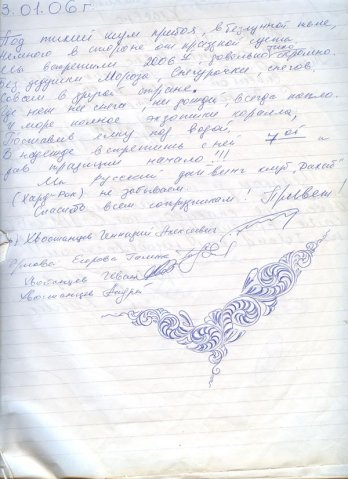 3.01.06 г
Под тихий шум прибоя, в безлунной тьме,
Немного в стороне от праздной суеты
Мы встретили 2006й, довольно скромно.
Без дедушки Мороза, Снегурочки, снегов,
Совсем в другой стране.
Где нет ни снега ни дождя, всегда тепло.
И море полное экзотики коралла,
Поставив ёлку под водой,
В надежде встретишься с ней 7ой и
дав традиции начало!!!
Мы Русский дайвинг клуб "Дахаб"
(Хард-Рок) не забываем.
Спасибо всем сотрудникам! Привет!
Хвостанцев Геннадий Алексеевич
Егорова Галина
Хвостанцев Иван
Хвостанцев Андрей